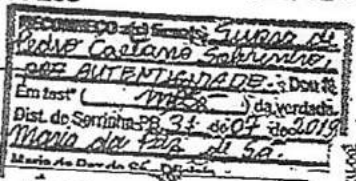 RECONHEÇO a(s) firma(s) supra de
Pedro Caetano Sobrinho,
por AUTENTICIDADE. Dou fé
Em testº ( ) da verdade.
Dist. de Serrinha-PB, 31 de 07 de 2019
Maria da Paz de Sá.
Maria da Paz de Sá